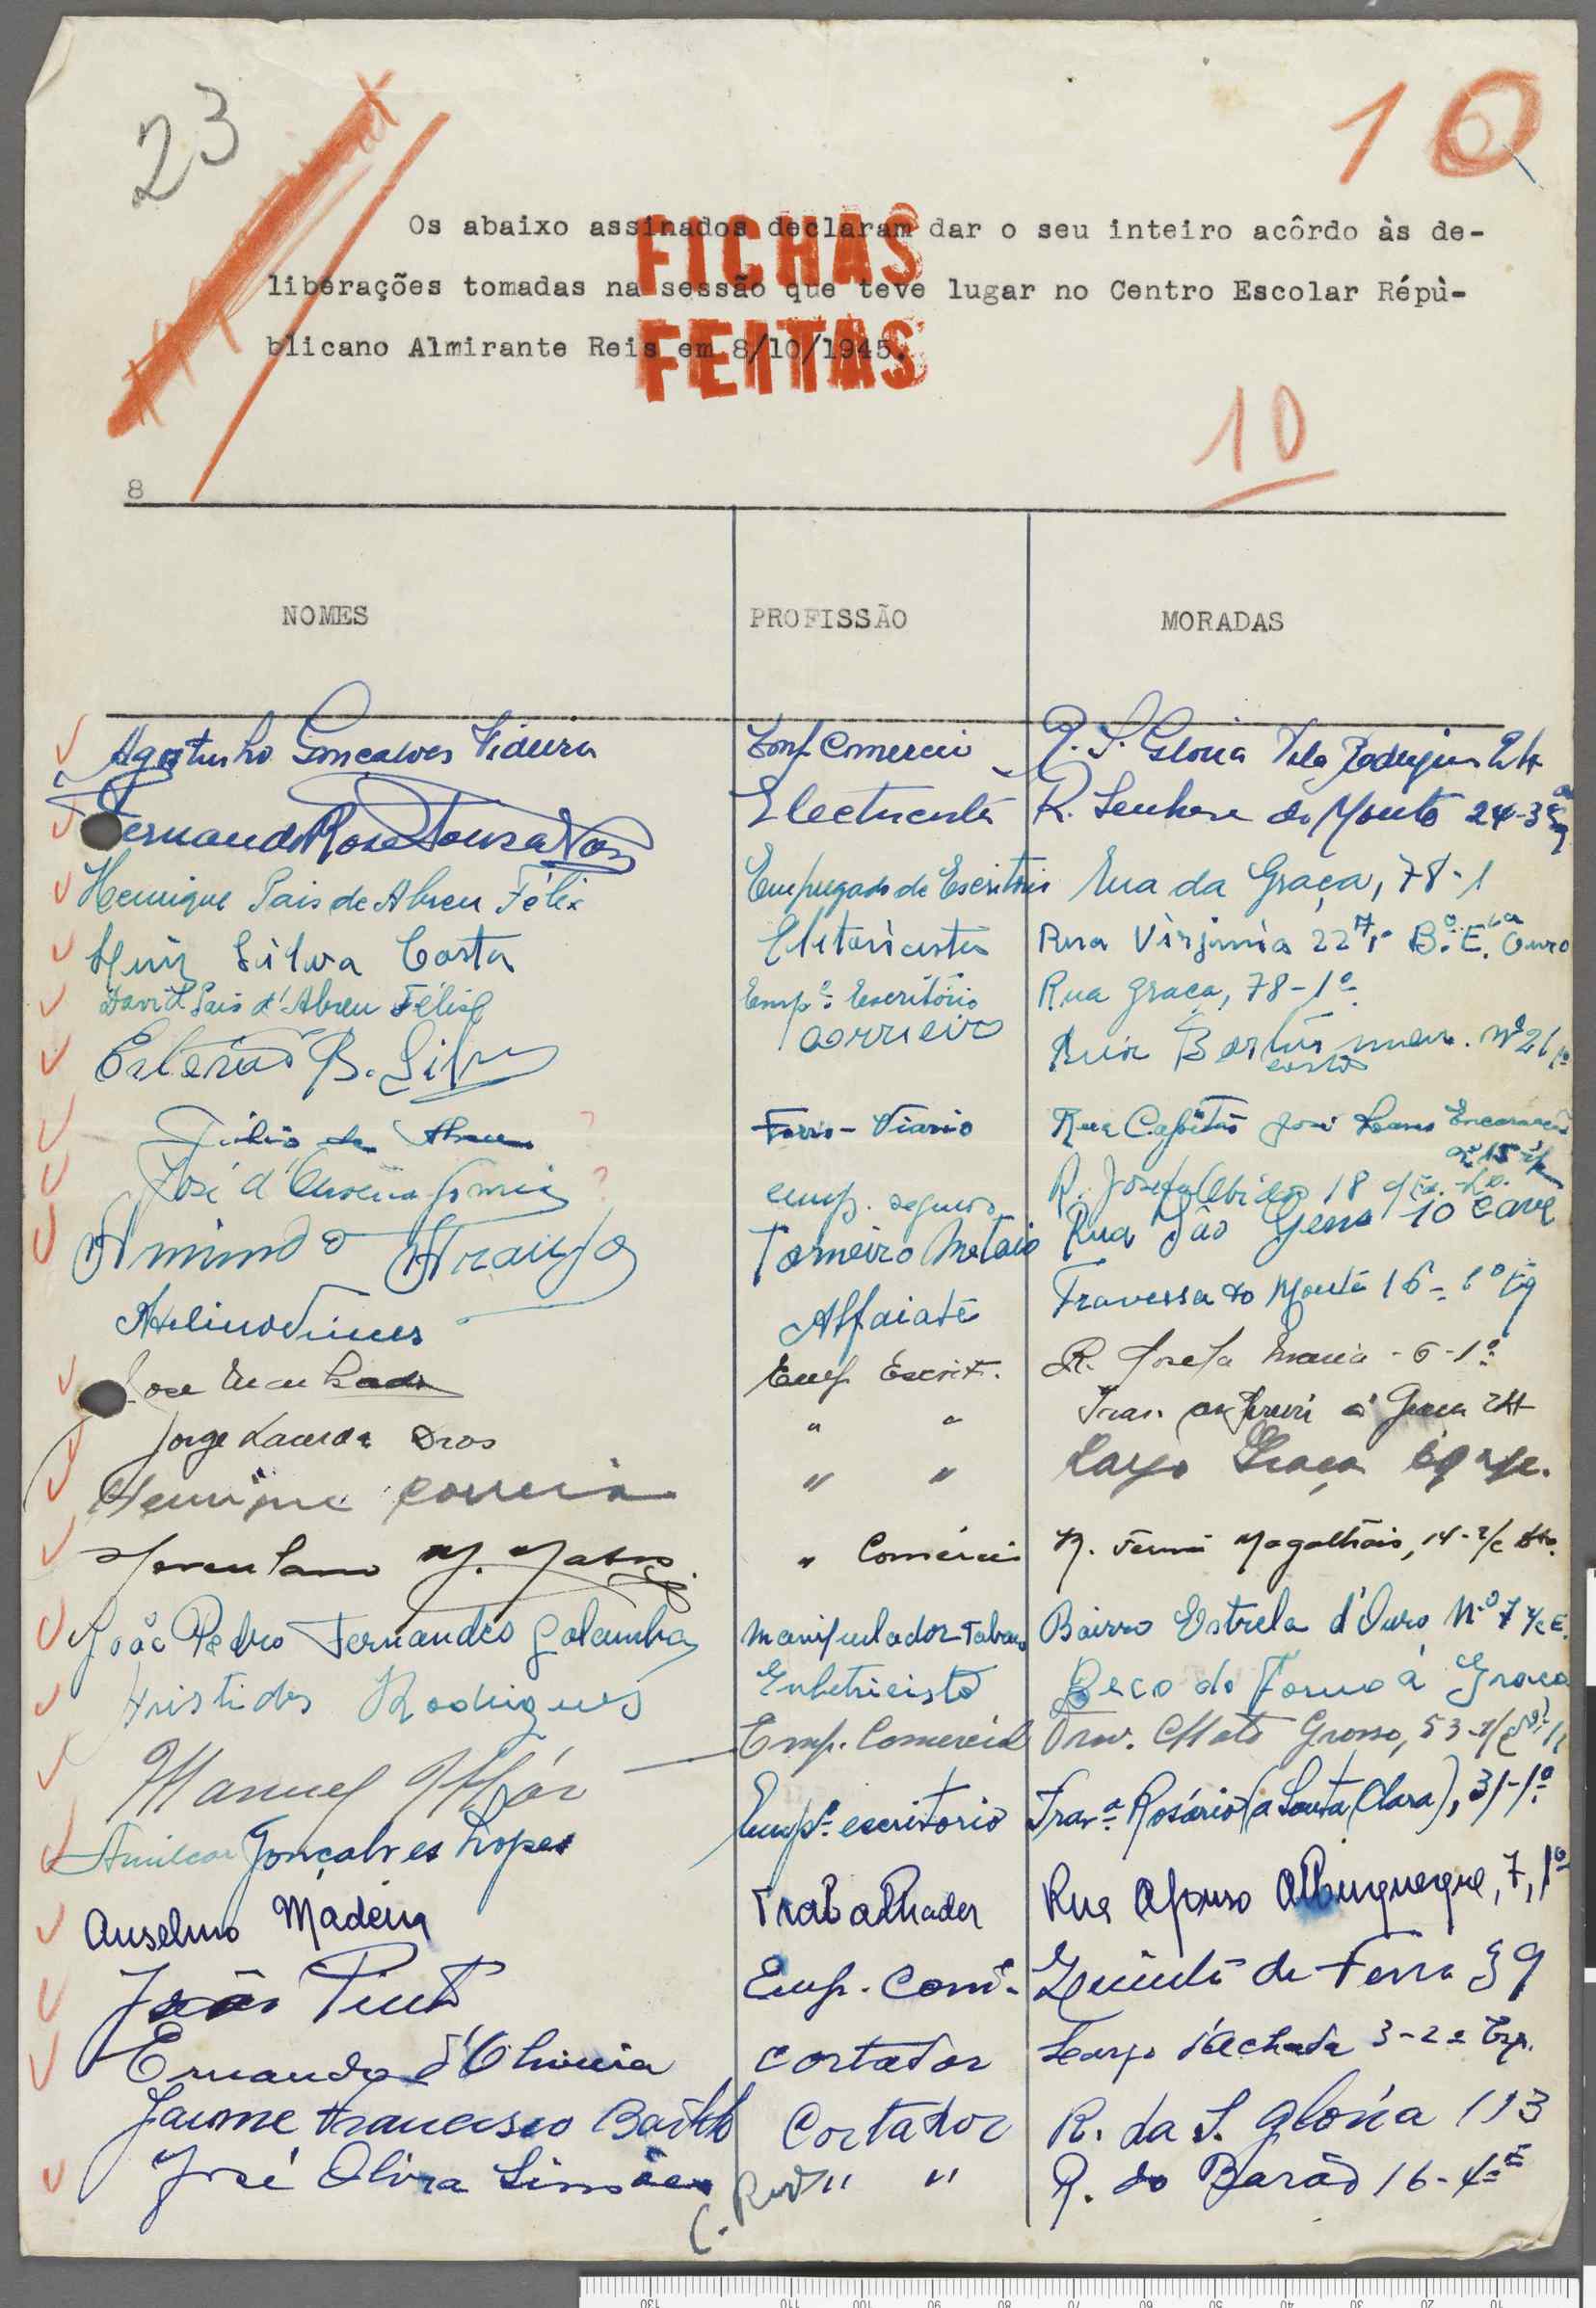 23
10
Os abaixo assinados declaram dar o seu inteiro acôrdo às de-
liberações tomadas na sessão que teve lugar no Centro Escolar Répù-
blicano Almirante Reis em 8/10/1945.
FICHAS
FEITAS
10
8
NOMES PROFISSÃO MORADAS
Agostinho Gonçalves Videira Emp Comercio R. S. Gloria Vila Rodrigues
Fernando Rosa Sousa Electricista R. Senhora do Monte 24-3
Henrique Pais de Abreu Félix Empregado de Escritorio Rua da Graça, 78-1
Silva Costa Rua Virginia 22 Ouro
David Pais d'Abreu Félix Emp.º Escritório Rua Graça, 78-1º
B. Silva Correiro Rua Nº 21
Julio de Abreu Ferro-Viario Rua Capitão José
José d'Oliveira ? emp. seguros R. Josefa Obidos 18
Armindo Araujo Torneiro Metais Rua São Gens 10 cave
Avelino Nunes Alfaiate Travessa do Monte 16-1º
José Machado Emp Escrit. R. Josefa Maria-6-1º
Jorge Lacerda Dias " " Graça
Henrique Correia " " Largo Graça
Herculano M. Matos " Comércio R. Magalhães, 14-r/c
João Pedro Fernandes Galamba Manipulador Tabaco Bairro Estrela d'Ouro N.º 7 r/c E.
Aristides Rodrigues Beco do Forno á Graça
Manuel Emp. Comercial Trav. Mato Grosso, 53-
Amilcar Gonçalves Lopes Emp.º escritorio Trav.ª Rosário (a Santa Clara), 31-1º
Anselmo Madeira Trabalhador Rua Afonso Albuquerque, 7, 1º
João Pinto Emp. Com. de Ferro 39
Ernando d'Oliveira Cortador Largo d'Achada 3-2º Esq.
Jaime Francisco Cortador R. da S. Gloria 113
José Oliva Simões " " R. do Barão 16-4º E